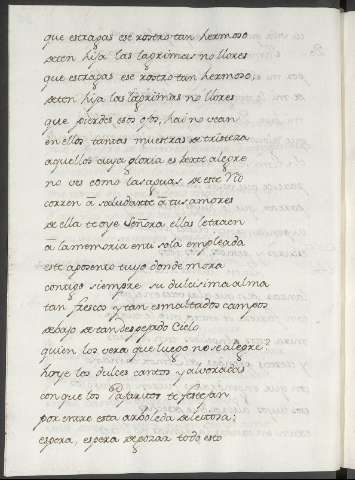 que estragas ese rostro tan hermoso
deten hija las lagrimas no llores
que estragas ese rostro tan hermoso,
deten hija las lagrimas no llores
que pierdes esos ojos, hai no vean
en ellos tantas muestras de tristeza
aquellos cuya gloria es berte alegre
no ves como las aguas de este Rio
corren â saludarte â tus amores
de ella te oye Señora ellas te traen
â la memoria en tu sola empleada
este aposento tuyo donde mora
contigo siempre su dulcisima alma
tan frescos y tan esmaltados campos
debajo de tan despejado Cielo
quien los vera que luego no se alegre?
hoye los dulces cantos y alvoradas
con que los Pajaritos te festejan
por entre esta arboleda deleitosa;
espera, espera de gozar todo esto